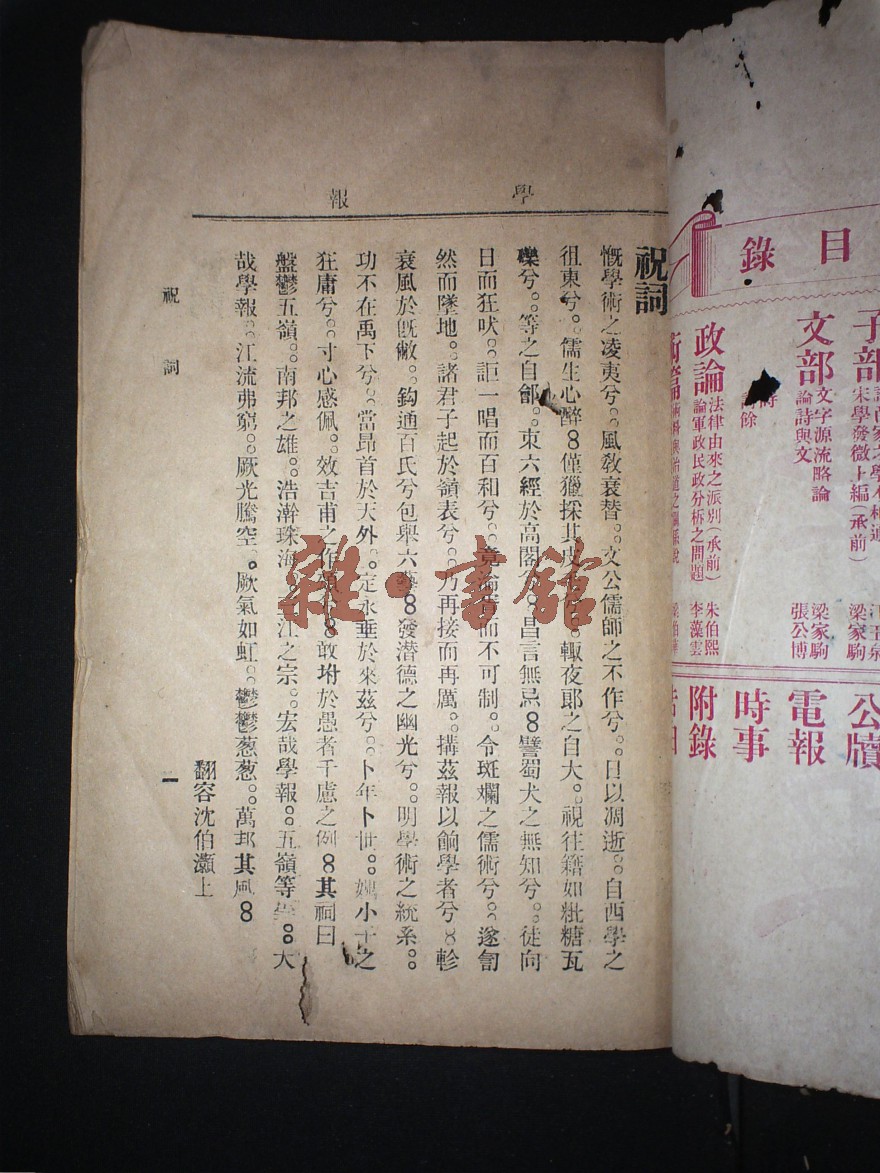 學報
祝詞
慨學術之凌夷兮。。風敎衰替。。文公儒師之不作兮。。日以凋逝。。自西學之
徂東兮。。儒生心醉。。僅獵採其皮兮。。輒夜郎之自大。。視往籍如粃糠瓦
礫兮。。等之自鄶。。束六經於高閣兮。。昌言無忌。。譬蜀犬之無知兮。。徒向
日而狂吠。。詎一唱而百和兮。。竟而不可制。。令斑斕之儒術兮。。遂匒
然而墜地。。諸君子起於嶺表兮。。乃再接而再厲。。搆茲報以餉學者兮。。軫
衰風於旣敝。。鈎通百氏兮包舉六藝。。發潛德之幽光兮。。明學術之統系。。
功不在禹下兮。。當昂首於天外。。定永垂於來茲兮。。卜年卜世。。小子之
狂庸兮。。寸心感佩。。效吉甫之作頌兮。。敢坿於愚者千慮之例。。其祠曰
盤鬱五嶺。。南邦之雄。。浩澣珠海。。三江之宗。。宏哉學報。。五嶺等。。大
哉學報。。江流弗窮。。厥光騰空。。厥氣如虹。。鬱鬱葱葱。。萬邦其風。。
翻容沈伯灝上
祝詞
一
雜·書館
目錄
子部
宋學發微上編(承前) 梁家駒
文部 文字源流略論 梁家駒
論詩與文 張公博
詩餘
政論 法律由來之派別(承前) 朱伯熙
論軍政民政分柝之問題 李藻雲
公牘
電報
時事
附錄